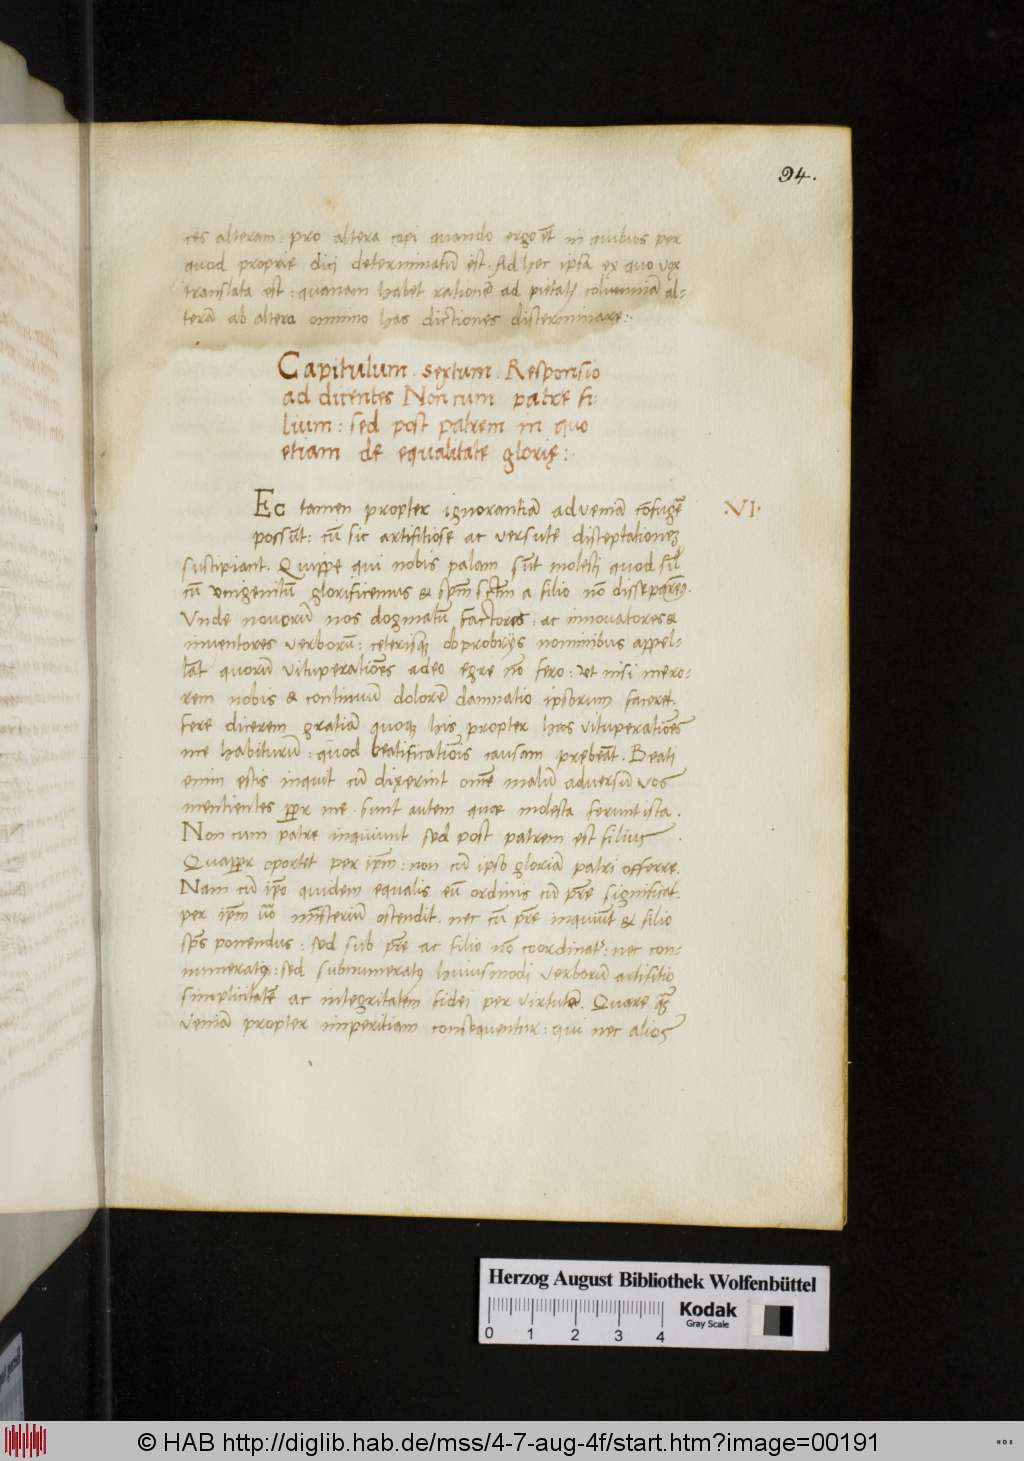 94.
ces alteram: pro altera capi quando ergo est̄ in quibus per
quod proprie dici determinatū est. Ad hec ipsa ex quo vox
translata est: quanam habet rationē ad pietatis calumniā al-
terā ab altera omnino has dictiones disterminare:.
Capitulum. sextum. Responsio
ad dicentes Non cum patre fi-
lium: sed post patrem in quo
etiam de equalitate glorię:.
Ec tamen propter ignorantiā ad veniā cōfugē
VI.
possūt: cū sic artifitiose ac versute disceptationes
suscipiant. Quippe qui nobis palam sūt molesti quod sīl
cū Unigenitū glorificemus & spm̄ sctm̄ a filio nō disseparemus.
Vnde novorū nos dogmatū factores: ac innovatores &
inventores verborū: ceterisq; obprobrijs nominibus appel-
lāt quorū vituperationēs adeo egre nō fero: ut nisi mero-
rem nobis & continuū dolorē damnatio ipsorum faceret.
fere dicerem gratiā quoq; his propter has vituperationēs
me habiturū: quod beatificationis causam prebeāt. Beati
enim estis inquit cū dixerint omē malū adversū vos
mentientes ppr me. sunt autem quae molesta feruntista.
Non cum patre inquiunt sed post patrem est filius.
Quappr oportet per ipm̄: non cū ipso gloriā patri offerre.
Nam cū ipo quidem equalis eū ordinis cū pr̄e significat.
per ipm̄ uō mīsterium ostendit. nec cū pr̄e inquiūt & filio
sps̄ ponendus: sed sub pr̄e ac filio nō coordinatꝰ: nec con-
numeratꝰ: sed subnumeratꝰ huiusmodi verborū artifitio
simplicitatē ac integritatem fidei per virtutē. Quare
veniā propter imperitiam consequentur: qui nec alios
Herzog August Bibliothek Wolfenbüttel
0 1 2 3 4
Kodak
Gray Scale
© HAB http://diglib.hab.de/mss/4-7-aug-4f/start.htm?image=00191